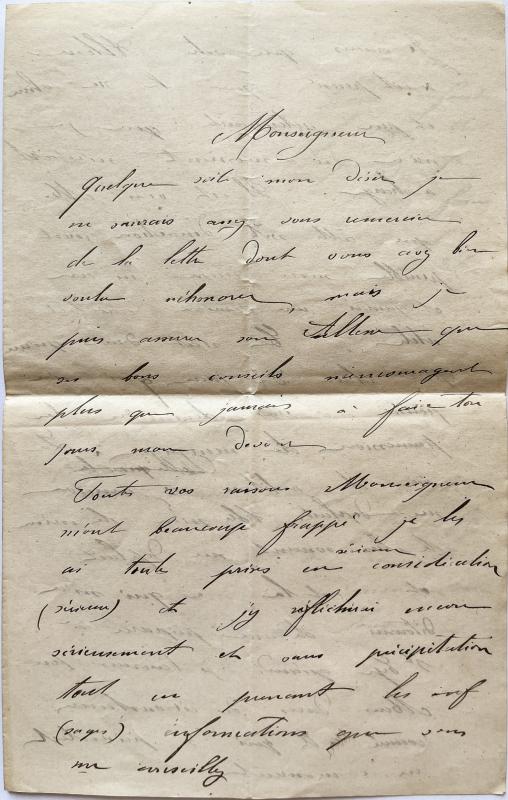 Monseigneur
Quelque soit mon désir je
ne saurais assez vous remercier
de la lettre dont vous avez bien
voulu m'honorer, mais je
puis assurer son Altesse que
ses bons conseils m'encouragent
plus que jamais à faire tou
jours mon devoir
Touts vos raisons Monseigneur
m'ont beaucoup frappé, je les
sérieuse
ai toute prises en considération
(sérieuse) et j'y réflichirai encore
sérieusement et sans précipitation
tout en prenant les
(sages) informations que vous
me conseillez